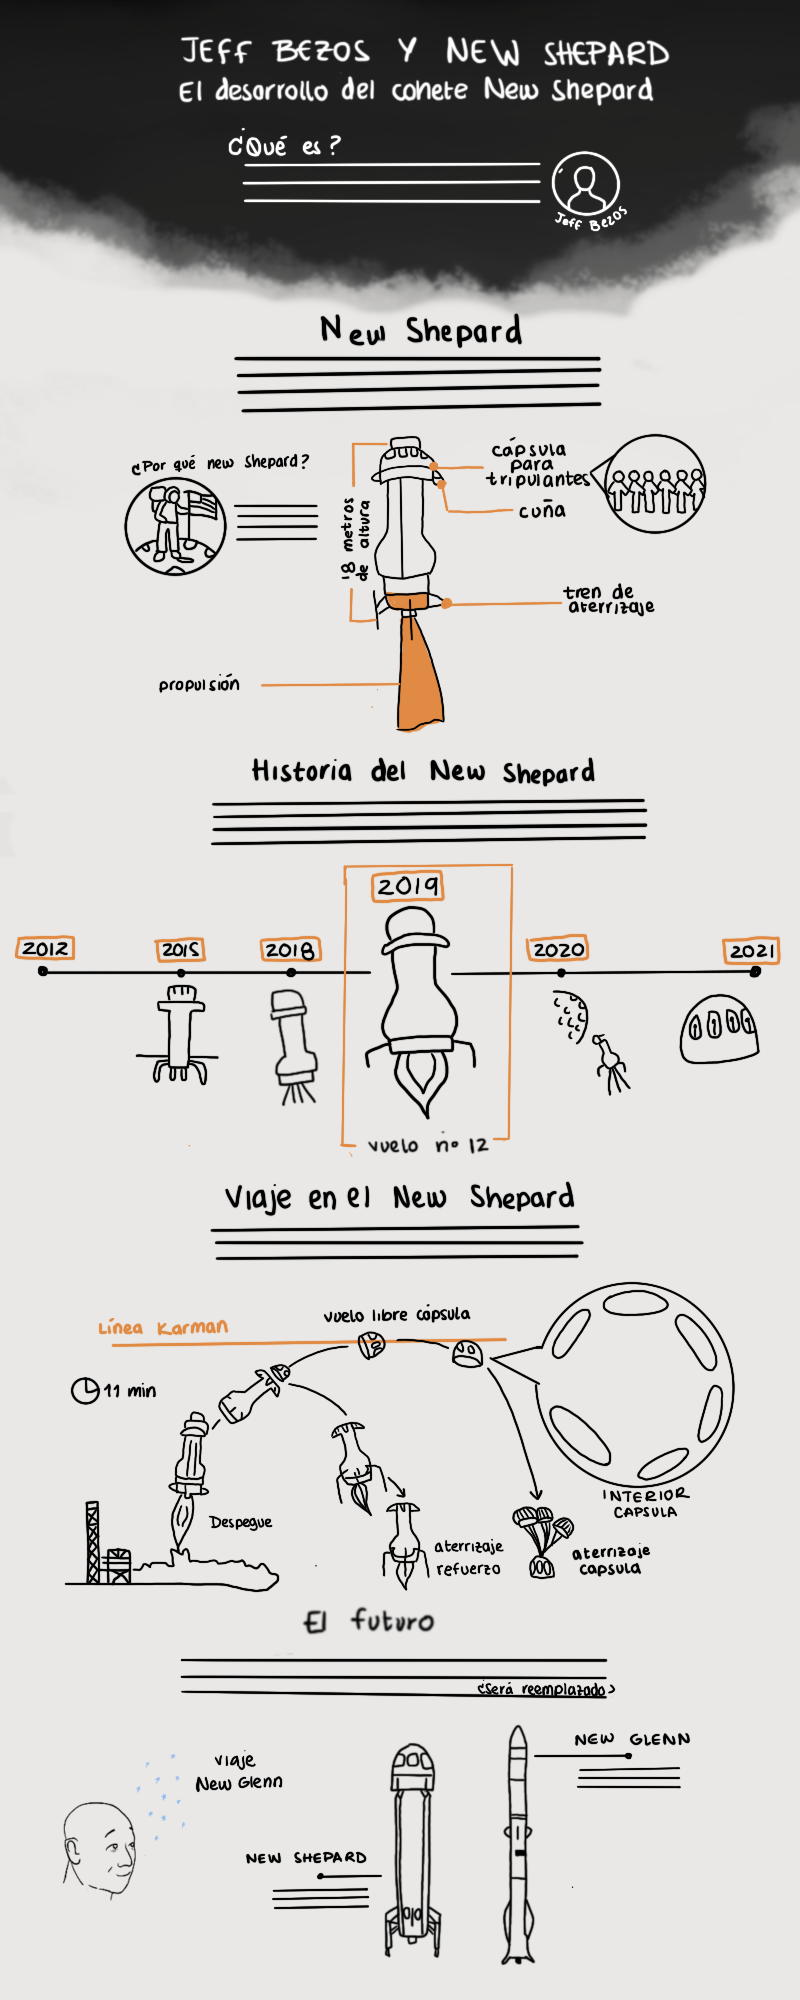 JEFF BEZOS Y NEW SHEPARD
El desarrollo del cohete New Shepard
¿Qué es?
Jeff Bezos
New Shepard
¿Por qué new shepard?
18 metros
de altura
cápsula
para
tripulantes
cuña
tren de
aterrizaje
propulsión
Historia del New Shepard
2012
2015
2018
2019
2020
2021
vuelo nº 12
Viaje en el New Shepard
Línea Karman
vuelo libre cápsula
11 min
Despegue
aterrizaje
refuerzo
aterrizaje
capsula
INTERIOR
CAPSULA
El futuro
¿Será reemplazado?
viaje
New Glenn
NEW SHEPARD
NEW GLENN